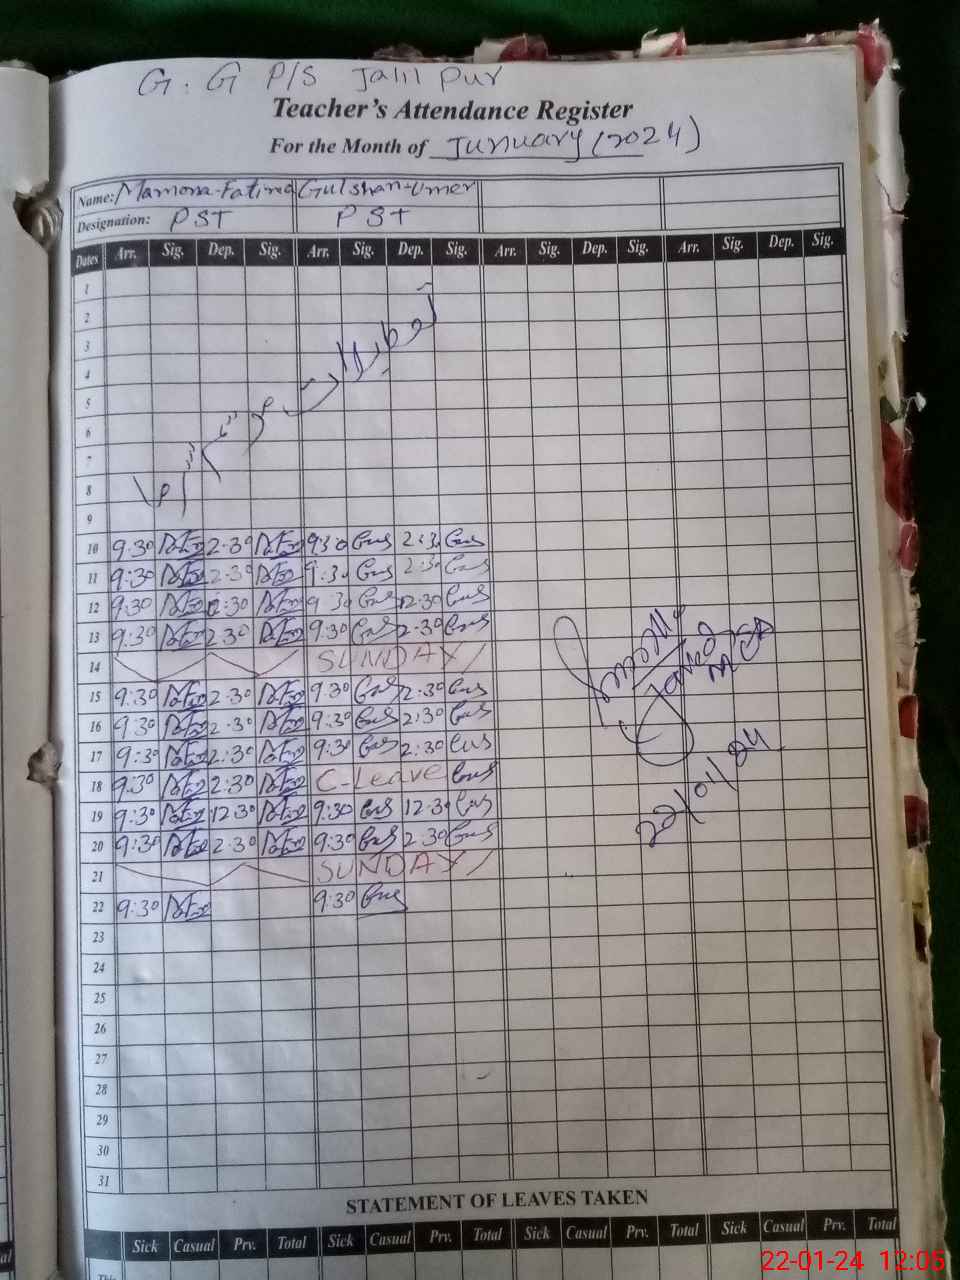 G. G P/S Jalil Pur
Teacher's Attendance Register
For the Month of Junuary (2024)
Name: Mamona-Fatima Gulshan-Umer
Designation: PST PST
Dates Arr. Sig. Dep. Sig. Arr. Sig. Dep. Sig. Arr. Sig. Dep. Sig. Arr. Sig. Dep. Sig.
1
2
3
4
5
6
7
8
9
10 9:30 2:30 9:30 2:30
11 9:30 2:30 9:30 2:30
12 9:30 12:30 9:30 12:30
13 9:30 2:30 9:30 2:30
14 SUNDAY
15 9:30 2:30 9:30 2:30
16 9:30 2:30 9:30 2:30
17 9:30 2:30 9:30 2:30
18 9:30 2:30 C-Leave
19 9:30 12:30 9:30 12:30
20 9:30 2:30 9:30 2:30
21 SUNDAY
22 9:30 9:30
23
24
25
26
27
28
29
30
31
22/01/24
STATEMENT OF LEAVES TAKEN
Sick Casual Prv. Total Sick Casual Prv. Total Sick Casual Prv. Total Sick Casual Prv. Total
This
22-01-24 12:05